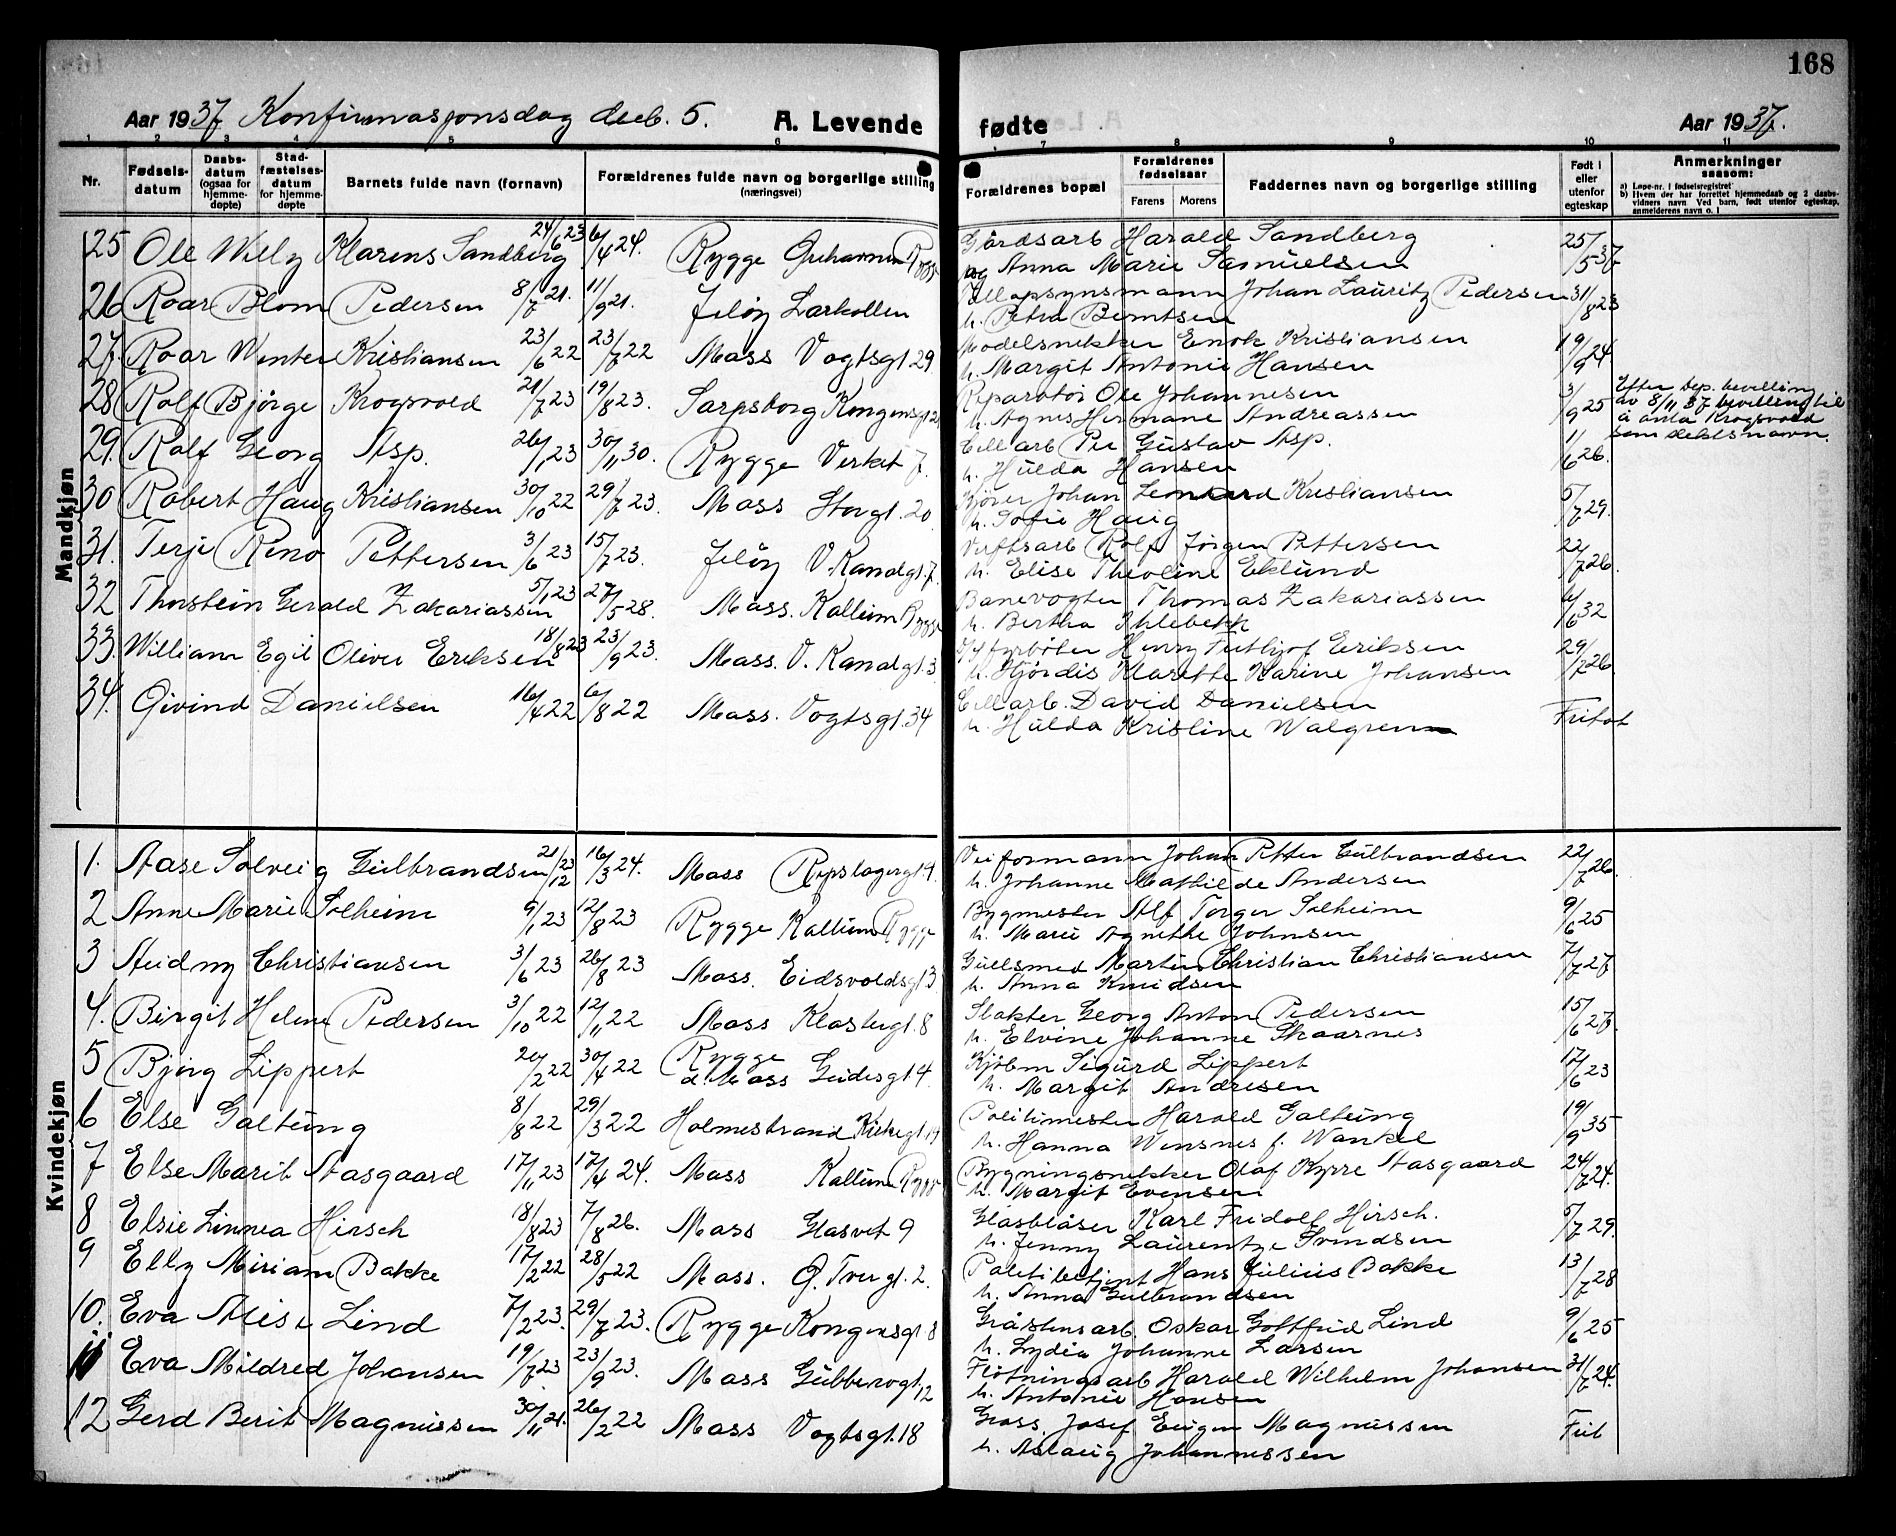 168
Aar 1937 Konfirmasjonsdag decb. 5. A. Levende fødte Aar 1937.
1 2 3 4 5 6 7 8 9 10 11
Nr. Fødsels-datum Daabs-datum (ogsaa for hjemme-døpte) Stad-fæstelses-datum for hjemme-døpte Barnets fulde navn (fornavn) Forældrenes fulde navn og borgerlige stilling (næringsvei) Forældrenes bopæl Forældrenes fødselsaar Farens Morens Faddernes navn og borgerlige stilling Født i eller utenfor egteskap Anmerkninger saasom:
a) Løpe-nr. i fødselsregistret
b) Hvem der har forrettet hjemmedaab og 2 daabs-vidners navn Ved barn, født utenfor egteskap, anmelderens navn o. l
Mandkjøn
25 Ole Willy Klarens Sandberg 24/6 23 6/4 24. Rygge Rygge Gårdsarb Harald Sandberg 25/5 37
og Anna Marie Samuelsen
26 Roar Blom Pedersen 8/7 21. 11/9 21. Jeløy Larkollen Tollopsynsmann Johan Lauritz Pedersen 31/8 23
h. Petra Berntsen
27. Roar Wenter Kristiansen 23/6 22 23/7 22 Moss Vogtsgt. 29 Modelsnekker Enok Kristiansen 19/9 24
h. Margit Antonie Hansen
28 Rolf Bjørge Krogsvold 21/7 23 19/8 23. Sarpsborg Kongensgt Reparatør Ole Johannesen 3/9 25 Efter dep. bevilling
av 8/11 37 bevilling til
å anta Krogsvold
som slektsnavn.
h. Agnes Hermane Andreassen
29. Rolf Georg Asp. 26/1 23 30/11 30. Rygge Verket 7. Cell arb Per Gustav Asp. 1/6 26.
h. Hulda Hansen
30 Robert Haug Kristiansen 30/10 22 29/7 23. Moss Storgt. 20 Kjører Johan Leonard Kristiansen 5/7 29.
h. Sofie Haug
31. Terje Reno Pettersen 3/6 23 15/7 23. Jeløy V. Kanalgt. 7. Verftsarb Rolf Jørgen Pettersen 22/7 26.
h. Elise Theoline Eklund
32 Thorstein Gerald Zakariassen 5/1 23 27/5 28. Moss. Kallum Rygge Banevogter Thomas Zakariassen 6/6 32
h. Bertha
33. William Egil Oliver Eriksen 18/8 23 23/9 23. Moss. V. Kanalgt. 3 fyrbøter Henry Frithjof Eriksen 29/7 26.
h. Hjørdis Klarette Karine Johansen
34. Øivind Danielsen 16/4 22 6/8 22 Moss. Vogtsgt. 34 Cell arb. David Danielsen
h. Hulda Kristine Walgren
Kvindekjøn
1. Aase Solveig Gulbrandsen 21/12 23 16/3 24. Moss Repslagergt 4. Veiformann Johan Petter Gulbrandsen 22/7 26.
h. Johanne Mathilde Andersen
2 Anne Marie Solheim 9/1 23 12/8 23 Rygge Kallum Rygge Bygmester Alf Torger Solheim 9/6 25
h. Marie Agnethe Johnsen
3 Aud ny Christiansen 3/6 23 26/8 23 Moss. Eidsvoldsgt 3 Gullsmed Martin Christian Christiansen 7/7 27
h. Anna Knudsen
4. Birgit Helene Pedersen 3/10 22 12/11 22 Moss Klostergt. 8 Slakter Georg Anton Pedersen 15/6 27.
h. Elvine Johanne Skaarnes
5 Bjørg Lippert 20/2 22 30/4 22 Rygge
Moss Gudesgt 4. Kjøbm Sigurd Lippert 17/6 23
h. Margit Andresen
6 Else Galtung 8/8 22 29/3 22 Holmestrand Kirkegt. 14 Politimester Harald Galtung 19/9 35
h. Hanna Wensnes f. Wankel
7 Else Marit Aasgaard 17/11 23 17/4 24. Moss Kallum Rygge Bygningsnekker Olaf Kyrre Aasgaard 24/7 24.
h. Margit Evensen
8 Elsie Linnea Hirsch 18/8 23 7/8 26. Moss Glasvet 9 Glasblåser Karl Fridolf Hirsch. 5/7 29.
h. Jenny Laurentze Svindsen
9 Elly Miriam Bakke 17/2 22 28/5 22 Moss. Ø. Tvergt. 2. Politibetjent Hans Julius Bakke 13/7 28
h. Anna Gulbrandsen
10. Eva Alise Lind 7/2 23. 29/7 23. Rygge Kongensgt. 8 Gråstensarb. Oskar Gottfrid Lind 9/6 25
h. Lydia Johanne Larsen
11 Eva Mildred Johansen 19/7 23 23/9 23. Moss Gubberogt. 12 Fløtningsarb Harald Wilhelm Johansen 31/7 24.
h. Antonie Hansen
12 Gerd Berit Magnussen 30/11 21. 26/2 22 Moss Vogtsgt. 18 Gross. Josef Eugen Magnussen
h. Aslaug Johannessen